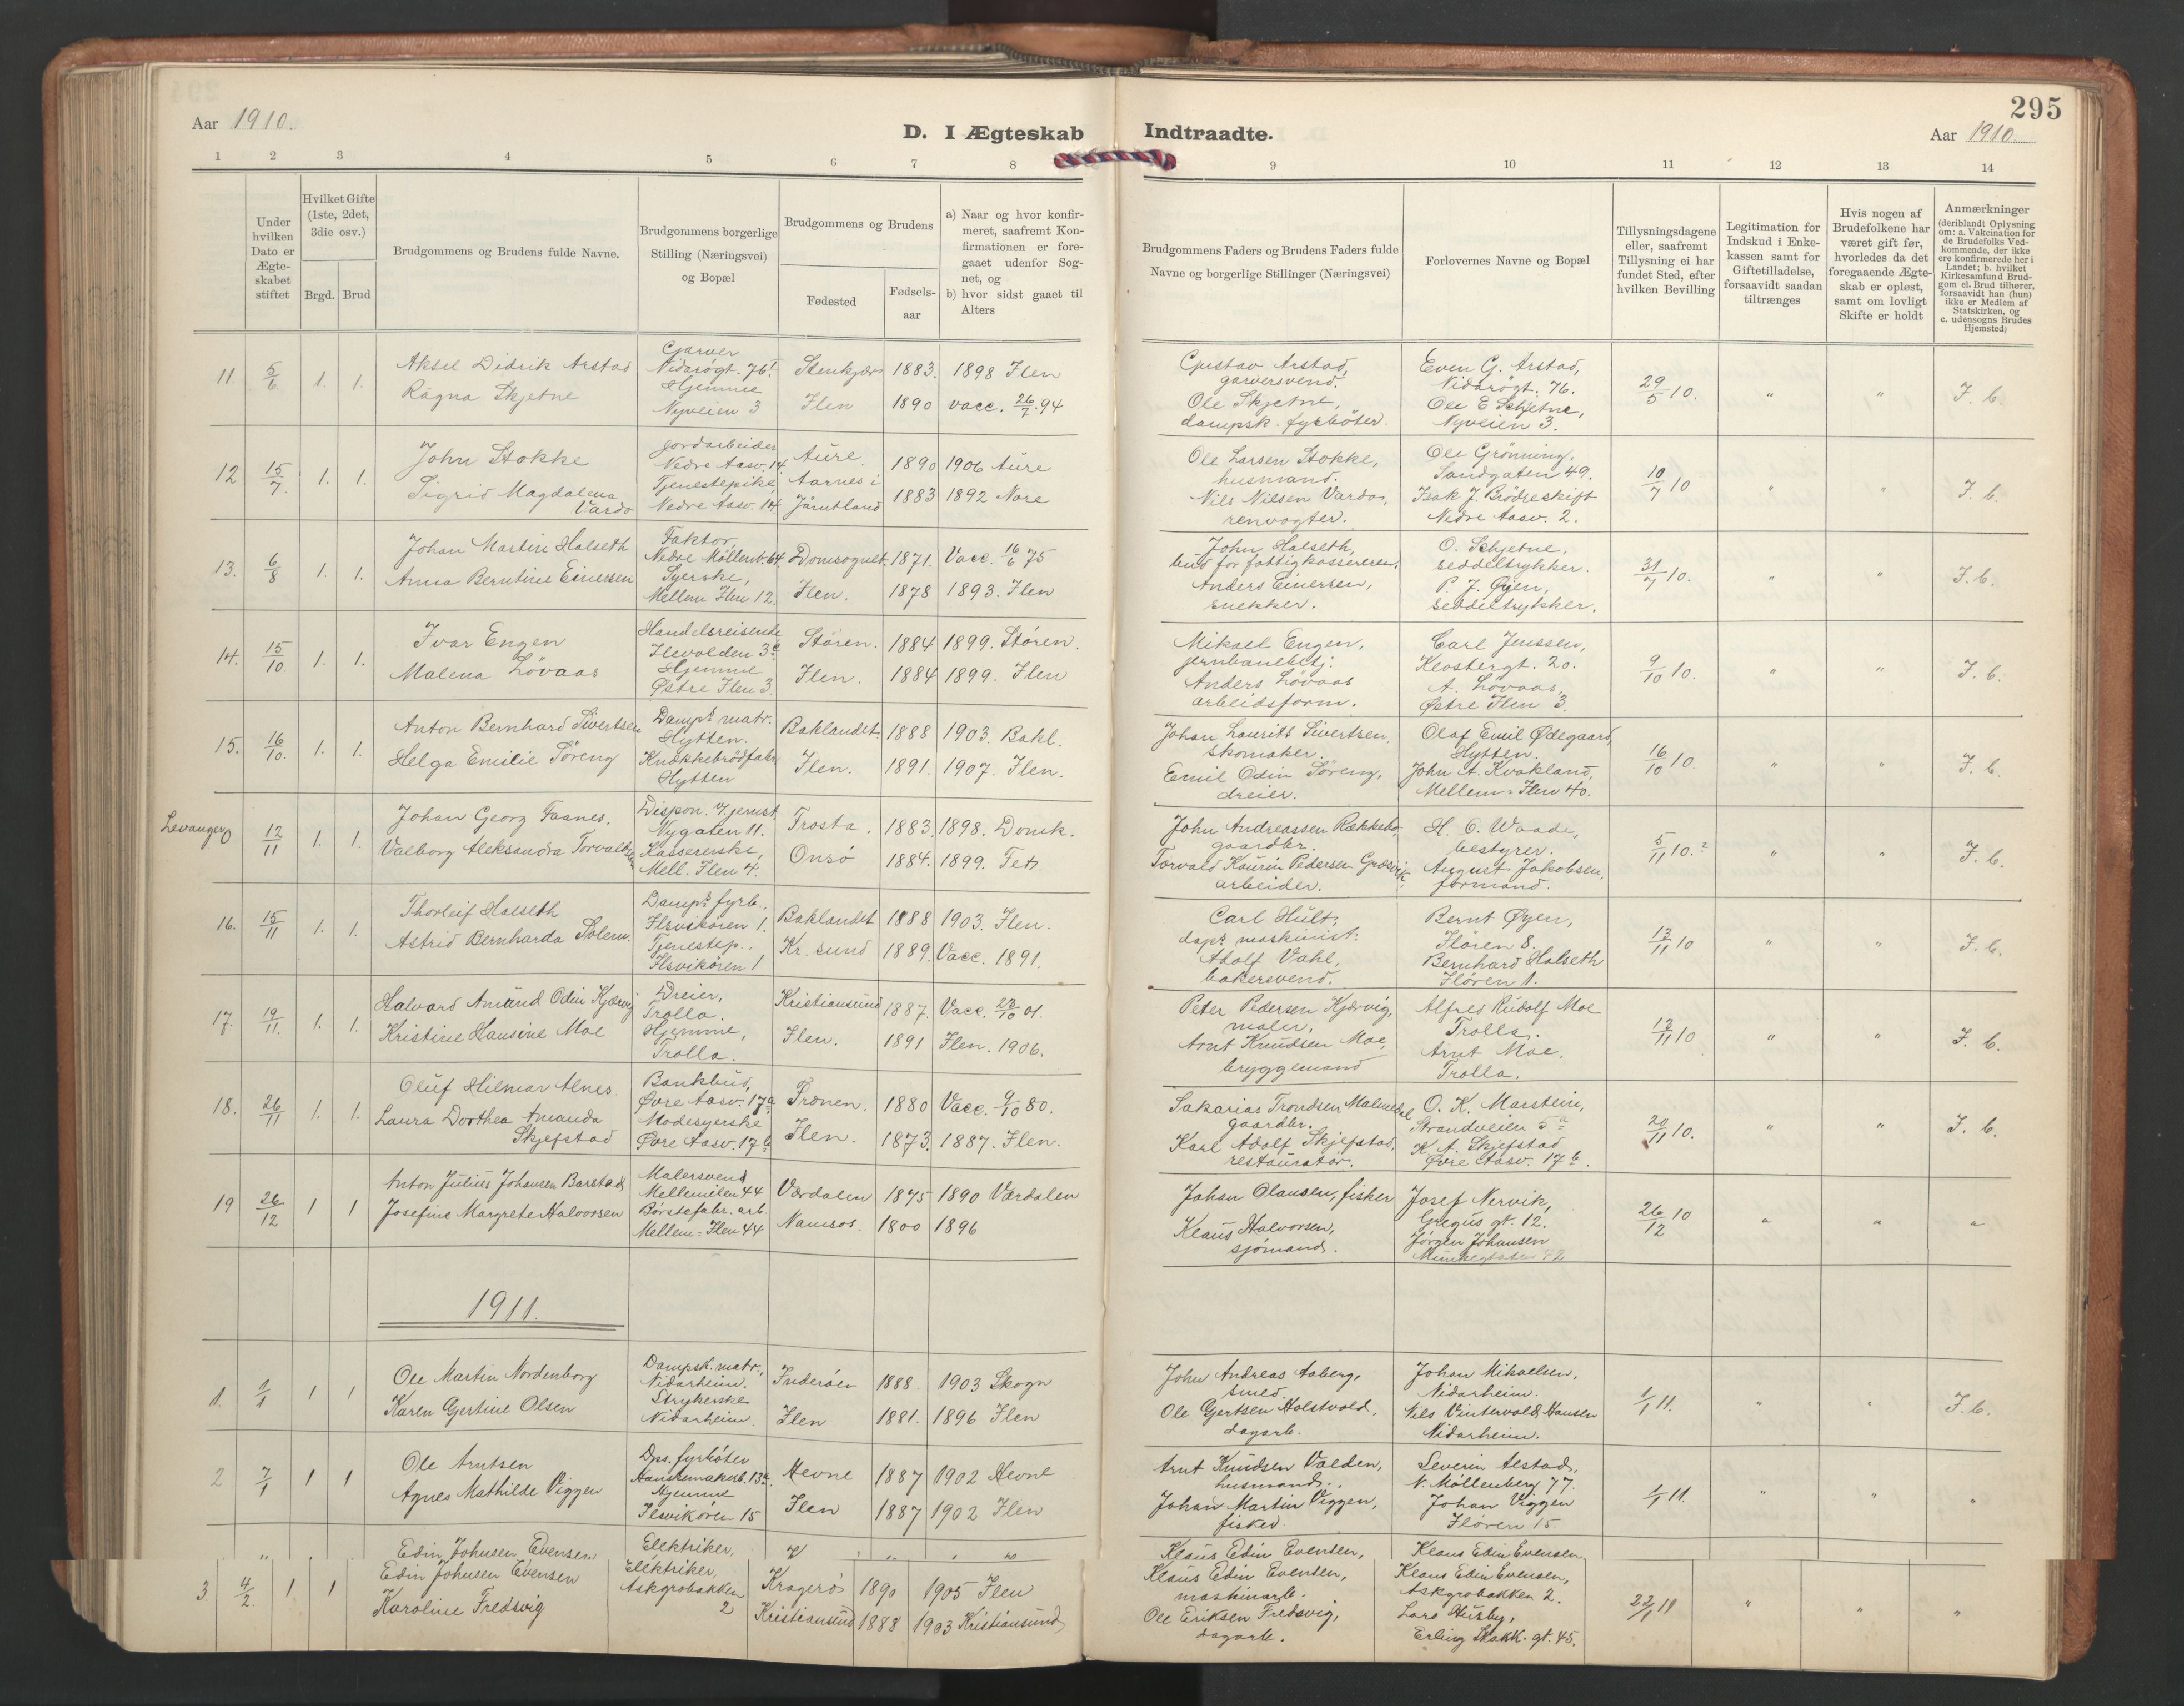 295
Aar 1910.
D. I Ægteskab Indtraadte.
Aar 1910
1 2 3 4 5 6 7 8 9 10 11 12 13 14
Under hvilken Dato er Ægteskabet stiftet
Hvilket Gifte (1ste, 2det, 3die osv.)
Brgd. Brud
Brudgommens og Brudens fulde Navne.
Brudgommens borgerlige Stilling (Næringsvei) og Bopæl
Brudgommens og Brudens
Fødested
Fødsels-aar
a) Naar og hvor konfirmeret, saafremt Konfirmationen er foregaaet udenfor Sognet, og
b) hvor sidst gaaet til Alters
Brudgommens Faders og Brudens Faders fulde Navne og borgerlige Stillinger (Næringsvei)
Forlovernes Navne og Bopæl
Tillysningsdagene eller, saafremt Tillysning ei har fundet Sted, efter hvilken Bevilling
Legitimation for Indskud i Enkekassen samt for Giftetilladelse, forsaavidt saadan tiltrænges
Hvis nogen af Brudefolkene har været gift før, hvorledes da det foregaaende Ægteskab er opløst, samt om lovligt Skifte er holdt
Anmærkninger (deriblandt Oplysning om: a. Vakcination for de Brudefolks Vedkommende, der ikke ere konfirmerede her i Landet; b. hvilket Kirkesamfund Brudgom el. Brud tilhører, forsaavidt han (hun) ikke er Medlem af Statskirken, og c. udensogns Brudes Hjemsted)
11 5/6 1. 1.
Aksel Didrik Arstad
Ragna Skjetne
Garver
Nidarøgt. 76 I
Hjemme
Nyveien 3
Stenkjær 1883. 1898 Ilen
Ilen 1890 vacc. 26/7.94
Gustav Arstad,
garversvend.
Ole Skjetne,
dampsk. fyrbøter.
Even G. Arstad,
Nidarøgt. 76.
Ole E Schjetne,
Nyveien 3.
29/5 10. " " J. b.
12 15/7. 1. 1.
John Stokke
Sigrid Magdalena
Vardo
Jordarbeider
Nedre Aasv. 14.
Tjenestepike
Nedre Aasv. 14.
Aure. 1890 1906 Aure
Aarnes i
Jämtland 1883 1892 Nore
Ole Larsen Stokke,
husmand.
Nils Nilsen Vardo,
renvogter.
Ole Grønning,
Sandgaten 49.
Isak J. Brødreskift
Nedre Aasv. 2.
10/7 10 " " J. b.
13. 6/8 1. 1.
Johan Martin Halseth
Anna Berntine Einersen
Faktor,
Nedre Møllenb. 64
Syerske,
Mellem Ilen 12.
Domsognet. 1871. Vacc. 16/6 75
Ilen. 1878 1893. Ilen
John Halseth,
bud for fattigkassereren.
Anders Einersen,
snekker.
O. Schjetne,
seddeltrykker.
P. J. Øyen,
seddeltrykker.
31/7 10. " " J. b.
14. 15/10. 1. 1.
Ivar Engen
Malena Løvaas
Handelsreisende
Ilevolden 3c
Hjemme
Østre Ilen 3.
Støren. 1884 1899. Støren.
Ilen. 1884 1899. Ilen
Mikael Engen,
jernbanebetj.
Anders Løvaas
arbeidsform.
Carl Jenssen,
Klostergt. 20.
A. Løvaas,
Østre Ilen 3.
9/10 10. " " J. b.
15. 16/10. 1. 1.
Anton Bernhard Sivertsen
Helga Emilie Söreng
Damps. matr.
Hytten.
Knækkebrödfabr.
Hytten
Baklandet. 1888 1903. Bakl.
Ilen. 1891. 1907. Ilen.
Johan Laurits Sivertsen,
skomaker.
Emil Odin Söreng,
dreier.
Olaf Emil Ødegaard,
Hytten.
John A. Kvakland,
Mellem-Ilen 40.
16/10 10. " " J. b.
Levanger 0 12/11 1. 1.
Johan Georg Faanes.
Valborg Aleksandra Torvaldsen
Dispon.
Nygaten 11.
Kassererske,
Mell. Ilen 4.
Frosta. 1883. 1898. Domk.
Onsø 1884. 1899.
John Andreassen Rækkebo,
gaardbr.
Torvald Kaurin Pedersen Græsvik,
arbeider.
H. O. Waade,
bestyrer.
August Jakobsen,
formand.
5/11 10.? " " J. b.
16. 15/11 1. 1.
Thorleif Halseth
Astrid Bernharda Solem
Damps. fyrb.,
Ilsvikøren 1.
Tjenestep.,
Ilsvikøren 1
Baklandet 1888 1903. Ilen.
Kr. sund 1889. Vacc. 1891.
Carl Hult,
dsps. maskinist.
Adolf Vahl,
bakersvend.
Bernt Øyen,
Iløren 8.
Bernhard Halseth
Iløren 1.
13/11 10 " " J. b.
17. 19/11. 1. 1.
Halvard Amund Odin Kjærvig
Kristine Hansine Moe
Dreier,
Trolla.
Hjemme,
Trolla.
Kristiansund 1887. Vacc. 23/10 01.
Ilen. 1891 Ilen. 1906.
Peter Pedersen Kjærvig,
maler,
Arnt Knudsen Moe,
bryggemand
Alfred Rudolf Moe
Trolla.
Arnt Moe,
Trolla.
13/11 10 " " J. b.
18. 26/11 1. 1.
Oluf Hilmar Alnes
Laura Dorthea Amanda
Skjefstad
Bankbud,
Øvre Aasv. 17a
Modesyerske
Øvre Aasv. 17b
Frænen. 1880 Vacc. 9/10 80.
Ilen. 1873. 1887. Ilen.
Sakarias Trondsen Malmedal
gaardbr.
Karl Adolf Skjefstad,
restauratør.
O. K. Marstein,
Strandveien 5a
K. A. Skjefstad
Øvre Aasv. 17b.
20/11 10. " " J. b.
19 26/12 1 1
Anton Julius Johansen Barstad
Josefine Margrete Halvorsen
Malersvend
Mellemilen 44
Børstefabr. arb.
Mellem-Ilen 44
Værdalen 1875 1890 Værdalen
Namsos. 1800 1896
Johan Olausen, fisker
Klaus Halvorsen,
sjømand.
Josef Nervik,
Gregus gt. 12.
Jørgen Johansen
Munkegtaten 42
26/12 10 " " "
1911.
1. 1/1 1 1
Ole Martin Nordenborg
Karen Gertine Olsen
Dampsk. matr.,
Nidarheim.
Strykerske
Nidarheim.
Inderøen 1888. 1903 Skogn
Ilen 1881. 1896 Ilen
John Andreas Aaberg,
smed.
Ole Gertsen Holstvold,
dagarb.
Johan Mikaelsen,
Nidarheim.
Nils Vintervold Hansen
Nidarheim.
1/1 11. " " J. b.
2 7/1 1 1
Ole Arntsen
Agnes Mathilde Viggen
Dps. fyrbøter
Hanskemakerb. 13a.
Hjemme
Ilsvikøren 15
Hevne 1887 1902 Hevne
Ilen 1887 1902 Ilen
Arnt Knudsen Vælden,
husmand.
Johan Martin Viggen,
fisker
Severin Alstad,
N. Møllenberg 77.
Johan Viggen
Iløren 15.
1/1 11. " " "
Edin Johnsen Evensen
Elektriker,
Klaus Edin Evensen,
Klaus Edin Evensen
3. 4/2. 1 1
Edin Johnsen Evensen
Karoline Fredsvig
Elektriker,
Askgrobakken
2
Kragerø 1890 1905 Ilen
Kristiansund 1888 1903 Kristiansund
Klaus Edin Evensen,
maskinarb.
Ole Eriksen Fredsvig,
dagarb.
Klaus Edin Evensen,
Askgrobakken 2.
Lars Husby,
Erling Skakk. gt. 45.
22/1 11 " " "